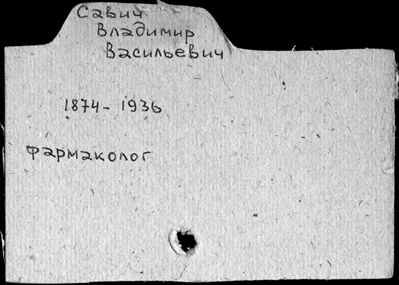 Савич
Владимир
Васильевич
1874-1936
фармаколог